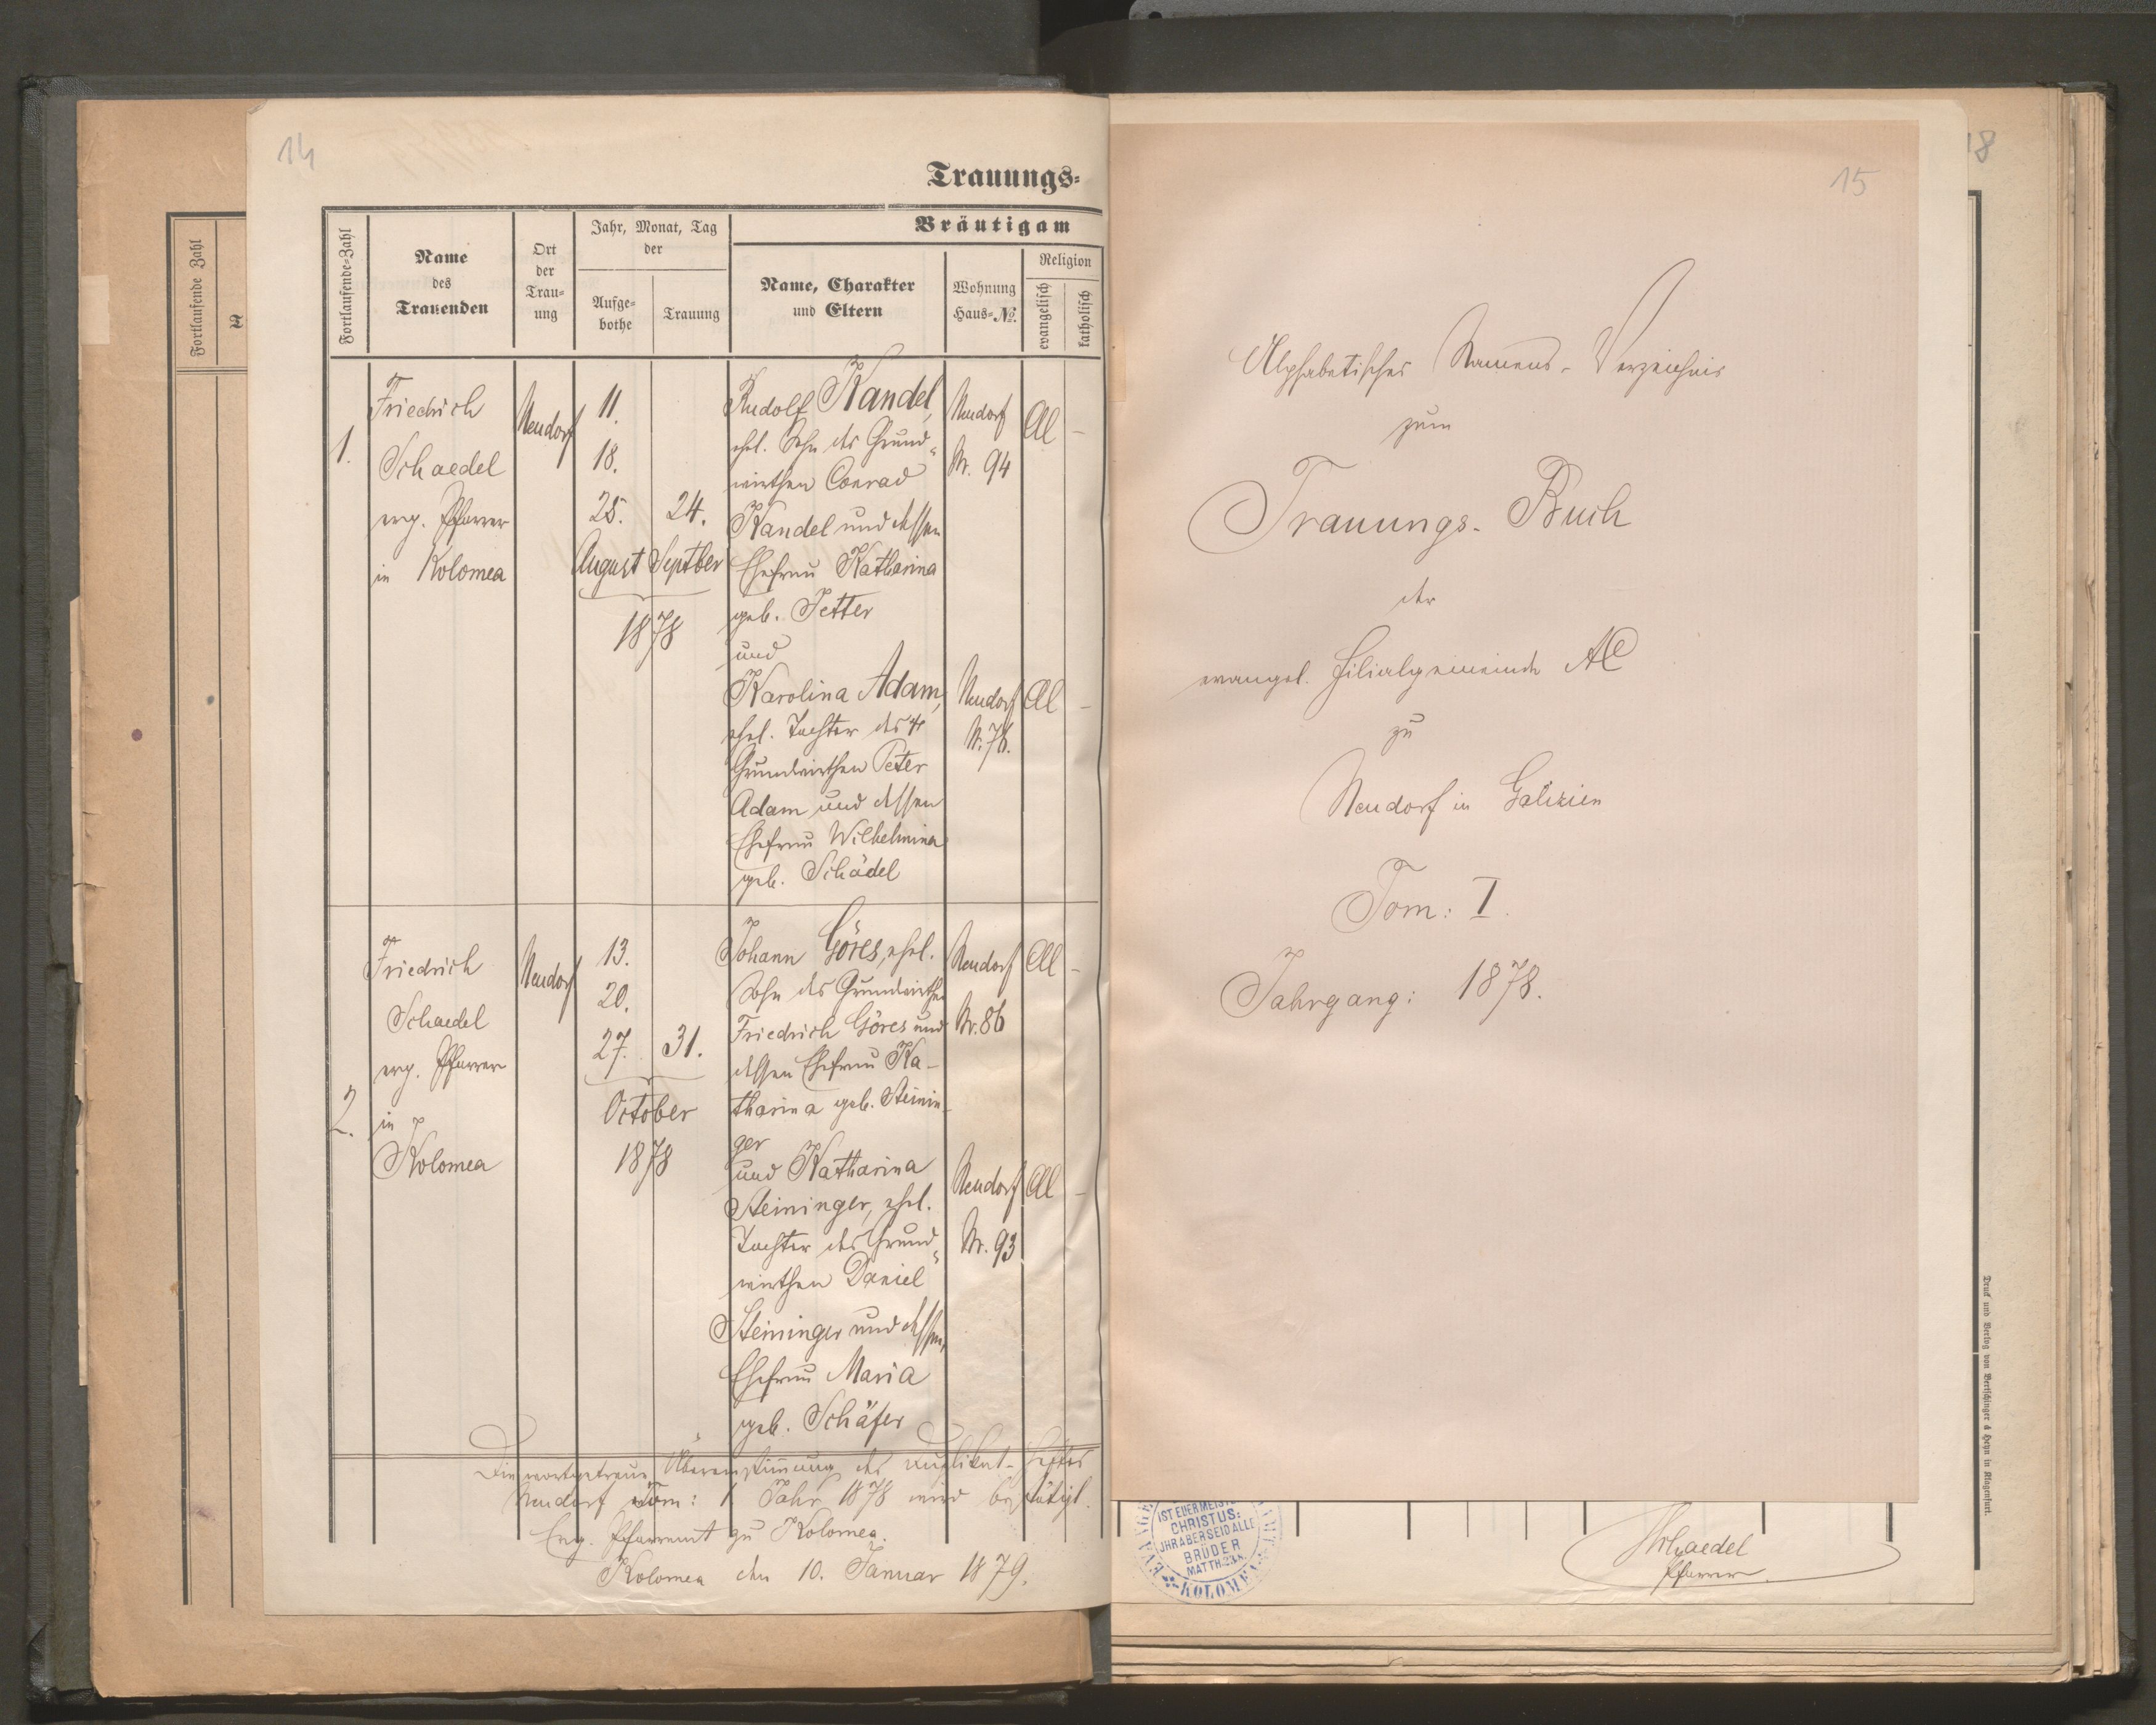 14
Trauungs-
Fortlaufende Zahl
Fortlaufende-Zahl
Name
des
Trauenden
Ort
der
Trau-
ung
Jahr, Monat, Tag
der
Aufge-
bothe
Trauung
Bräutigam
Name, Charakter
und Eltern
Wohnung
Haus-No.
Religion
evangelisch
katholisch
1.
Friedrich
Schaedel
evg. Pfarrer
in Kolomea
Neudorf
11.
18.
25. 24.
August Septber
1878
Rudolf Kandel,
ehel. Sohn des Grund-
wirthen Conrad
Kandel und dessen
Ehefrau Katharina
geb. Jetter
und
Karolina Adam,
ehel. Tochter des
Grundwirthen Peter
Adam und dessen
Ehefrau Wilhelmina
geb. Schädel
Neudorf
Nr. 94
AC –
Neudorf
Nr. 76.
AC –
2.
Friedrich
Schaedel
evg. Pfarrer
in
Kolomea
Neudorf
13.
20.
27. 31.
October
1878
Johann Göres, ehel.
Sohn des Grundwirthen
Friedrich Göres und
dessen Ehefrau Ka-
tharina geb. Steinin-
ger
und Katharina
Steininger, ehel.
Tochter des Grund-
wirthen Daniel
Steininger und dessen
Ehefrau Maria
geb. Schäfer
Neudorf
Nr. 86
AC –
Neudorf
Nr. 93
AC –
Die wortgetreue Übereinstimmung des Duplikat-Heftes
Neudorf Tom: 1 Jahr 1878 wird bestätigt.
Evg. Pfarramt zu Kolomea.
Kolomea den 10. Januar 1879.
15
18
Alphabetisches Namens-Verzeichnis
zum
Trauungs-Buch
der
evangel. Filialgemeinde AC
zu
Neudorf in Galizien
Tom: I.
Jahrgang: 1878.
IST EUER MEISTER
CHRISTUS:
JHR ABER SEID ALLE
BRÜDER
MATTH. 23.8.
KOLOMEA
Schaedel
Pfarrer
Druck und Verlag von Bertschinger & Heyn in Klagenfurt.